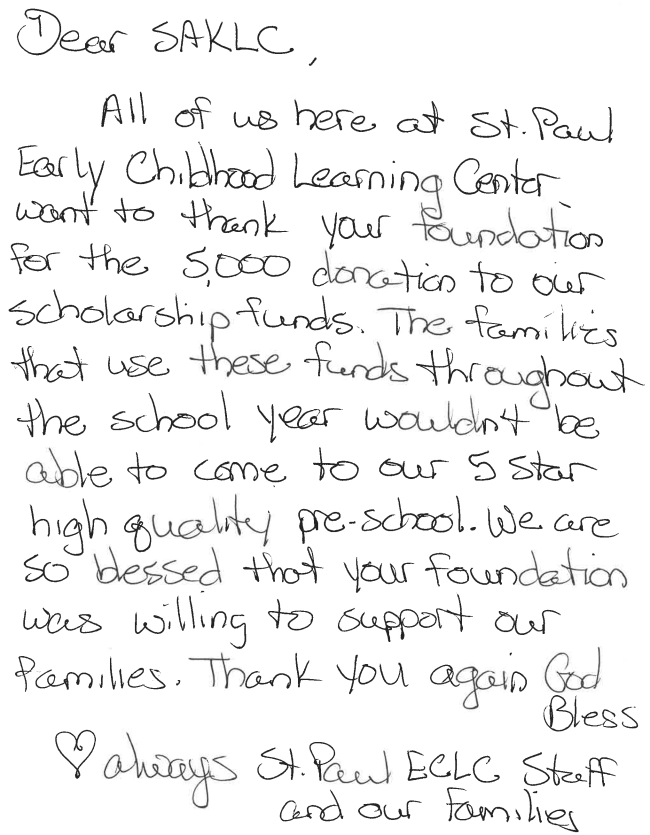 Dear SAKLC,
All of us here at St. Paul
Early Childhood Learning Center
want to thank your foundation
for the 5,000 donation to our
scholarship funds. The families
that use these funds throughout
the school year wouldn't be
able to come to our 5 Star
high quality pre-school. We are
so blessed that your foundation
was willing to support our
families. Thank you again God
Bless
♡ always St. Paul ECLC Staff
and our families